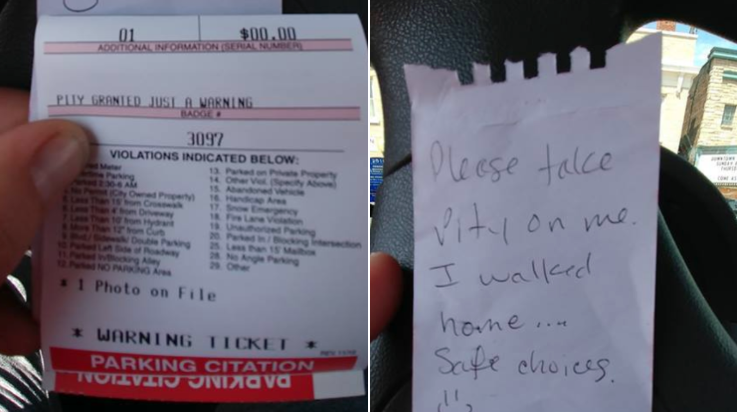 01 $00.00
ADDITIONAL INFORMATION (SERIAL NUMBER)
PITY GRANTED JUST A WARNING
BADGE #
3097
VIOLATIONS INDICATED BELOW:
Meter
Parking
2:30-6 AM
No Permit (City Owned Property)
Less Than 15' from Crosswalk
Less Than 4' from Driveway
Less Than 10' from Hydrant
More Than 12" from Curb
Blvd./ Sidewalk/ Double Parking
10. Parked Left Side of Roadway
11. Parked In/Blocking Alley
12. Parked NO PARKING Area
13. Parked on Private Property
14. Other Viol. (Specify Above)
15. Abandoned Vehicle
16. Handicap Area
17. Snow Emergency
18. Fire Lane Violation
19. Unauthorized Parking
20. Parked In / Blocking Intersection
25. Less than 15' Mailbox
28. No Angle Parking
29. Other
* 1 Photo on File
* WARNING TICKET *
PARKING CITATION
PARKING CITATION
Please take
Pity on me.
I walked
home ....
Safe choices.
DOWNTOWN